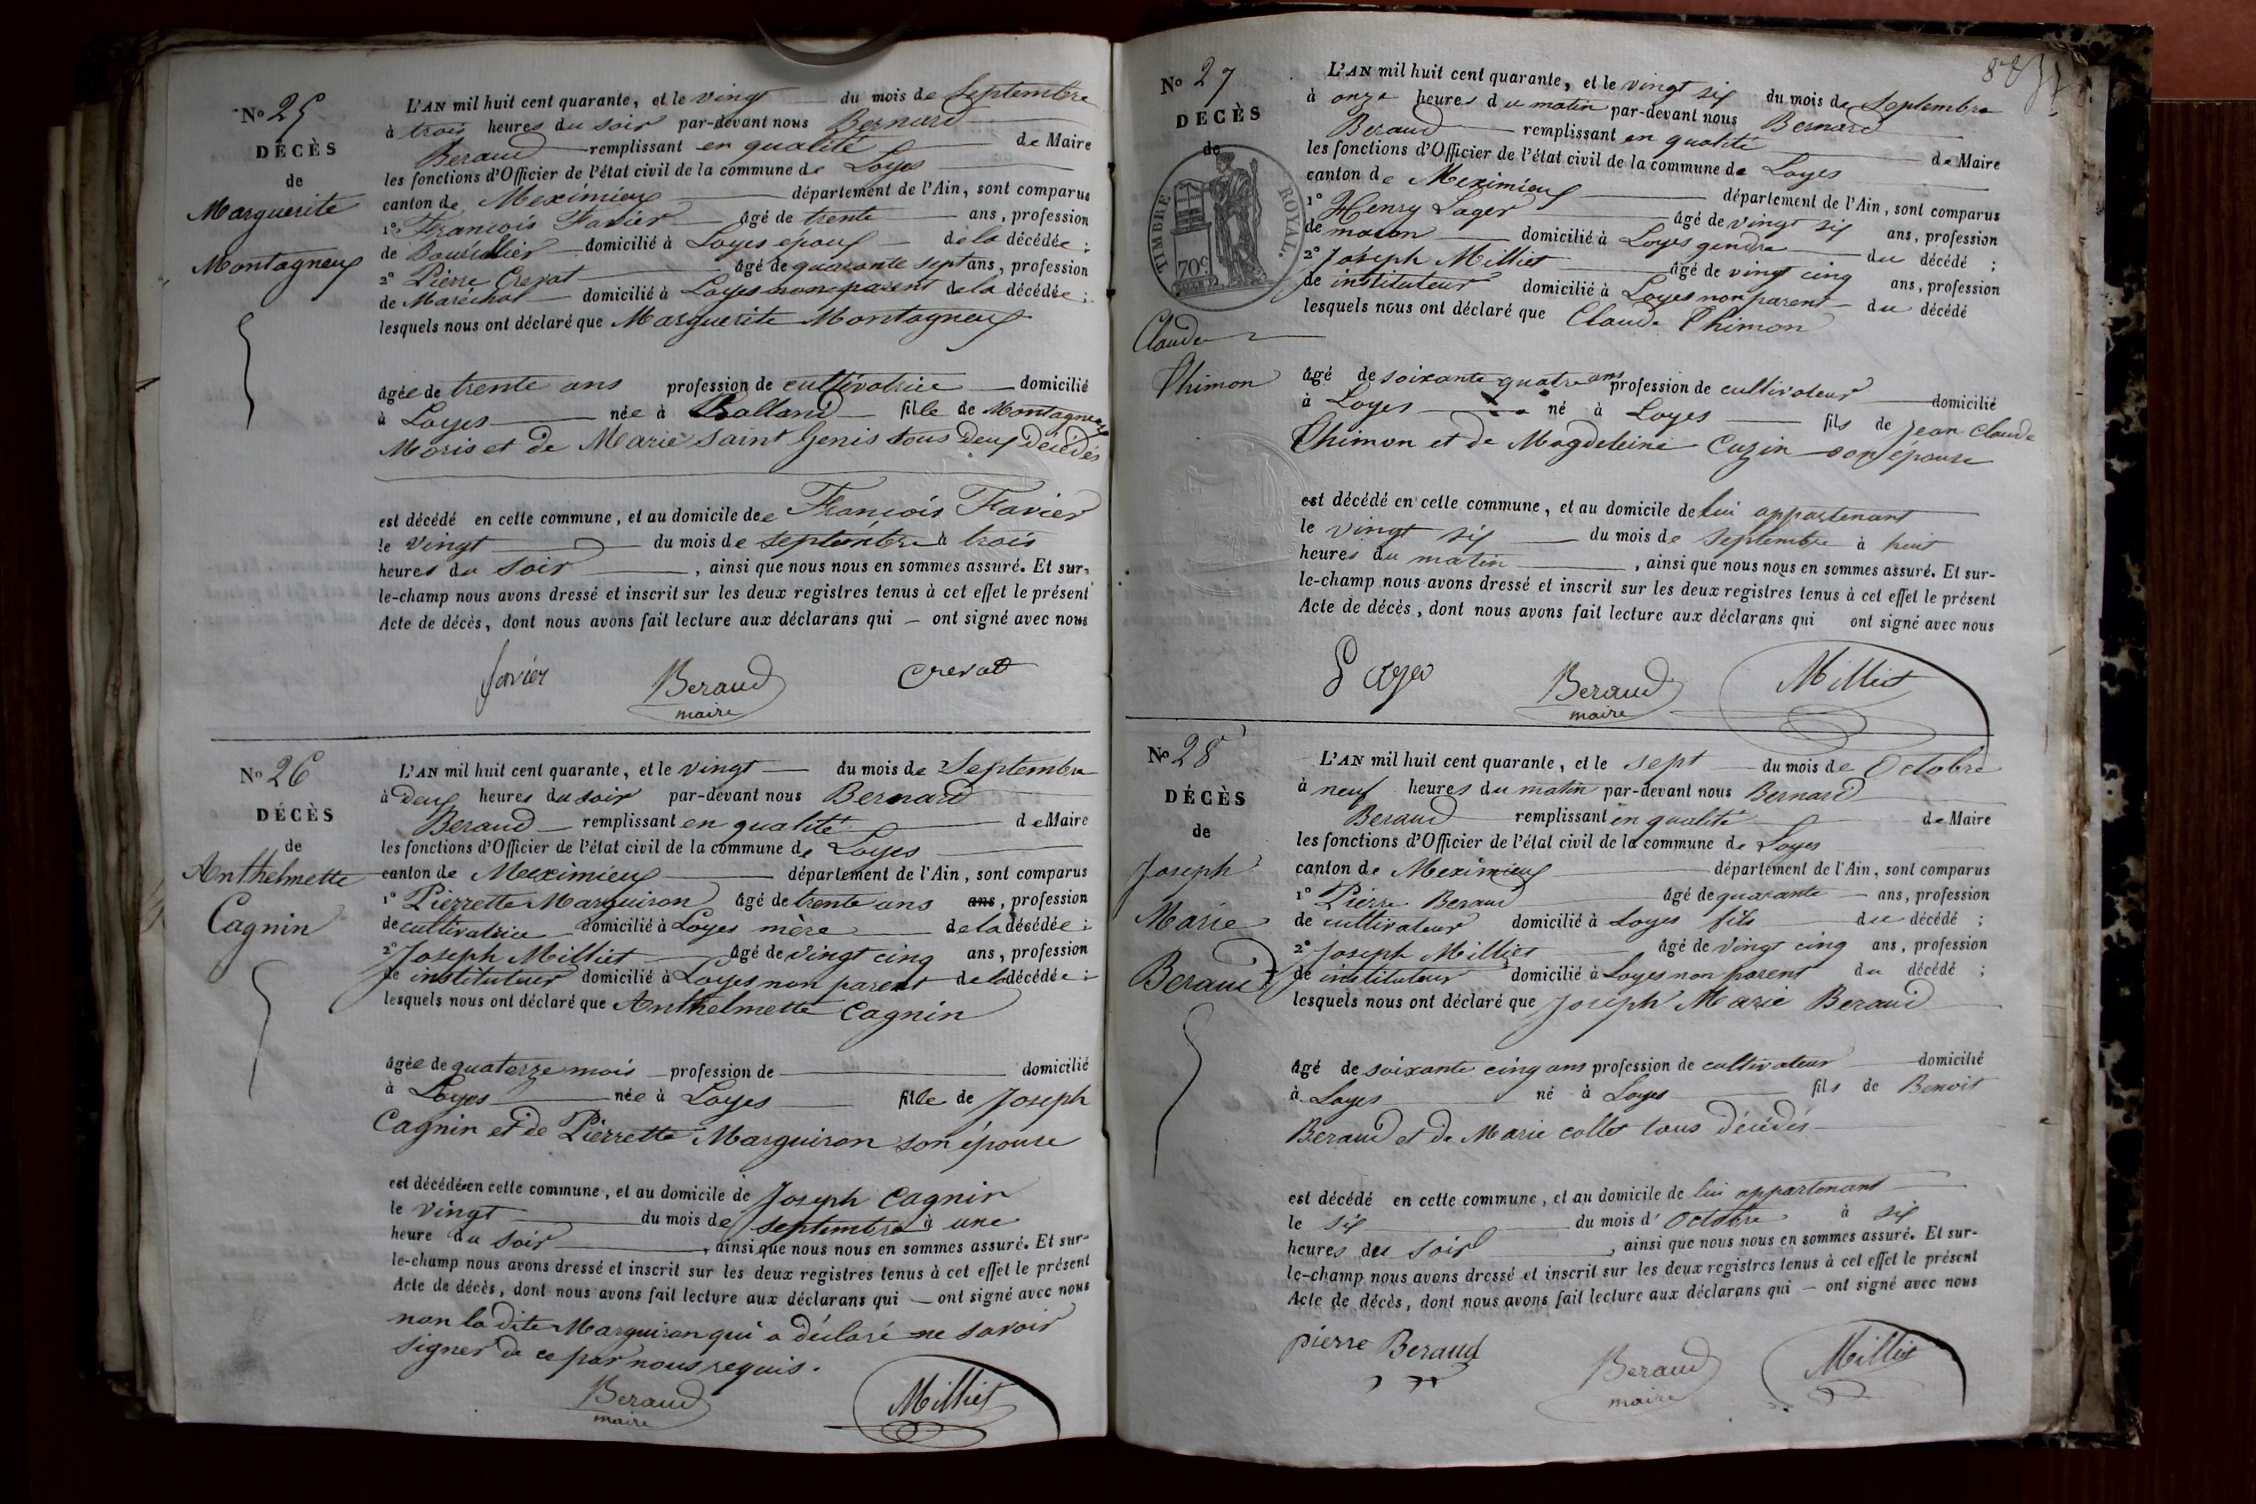 No 25
DÉCÈS
de
Marguerite
Montagneux
L'AN mil huit cent quarante, et le vingt du mois de Septembre
à trois heures du soir par-devant nous Bernard
Beraud remplissant en qualité de Maire
les fonctions d'Officier de l'état civil de la commune de Loyes
canton de Meximieux département de l'Ain, sont comparus
1° François Favier âgé de trente ans, profession
de Bourrelier domicilié à Loyes époux de la décédée ;
2° Pierre Crevat âgé de quarante sept ans, profession
de Maréchal domicilié à Loyes non parent de la décédée ;
lesquels nous ont déclaré que Marguerite Montagneux
âgée de trente ans profession de cultivatrice domicilié
à Loyes née à Balland fille de Montagneux
Moris et de Marie Saint Genis tous deux décédés
est décédé en cette commune, et au domicile de François Favier
le vingt du mois de septembre à trois
heures du soir, ainsi que nous nous en sommes assuré. Et sur-
le-champ nous avons dressé et inscrit sur les deux registres tenus à cet effet le présent
Acte de décès, dont nous avons fait lecture aux déclarans qui — ont signé avec nous
favier Beraud crevat
maire
No 26
DÉCÈS
de
Anthelmette
Cagnin
L'AN mil huit cent quarante, et le vingt du mois de Septembre
à deux heures du soir par-devant nous Bernard
Beraud remplissant en qualité de Maire
les fonctions d'Officier de l'état civil de la commune de Loyes
canton de Meximieux département de l'Ain, sont comparus
1° Pierrette Marguiron âgé de trente ans ans, profession
de cultivatrice domicilié à Loyes mère de la décédée ;
2° Joseph Milliet âgé de vingt cinq ans, profession
de instituteur domicilié à Loyes non parent de la décédée ;
lesquels nous ont déclaré que Anthelmette Cagnin
âgée de quatorze mois profession de domicilié
à Loyes née à Loyes fille de Joseph
Cagnin et de Pierrette Marguiron son épouse
est décédée en cette commune, et au domicile de Joseph Cagnin
le vingt du mois de septembre à une
heure du soir, ainsi que nous nous en sommes assuré. Et sur-
le-champ nous avons dressé et inscrit sur les deux registres tenus à cet effet le présent
Acte de décès, dont nous avons fait lecture aux déclarans qui — ont signé avec nous
non la dite Marguiron qui a déclaré ne savoir
signer de ce par nous requis.
Beraud Milliet
maire
No 27
DÉCÈS
de
TIMBRE ROYAL.
70c
Claude
Thimon
L'AN mil huit cent quarante, et le vingt six du mois de Septembre
à onze heures du matin par-devant nous Bernard
Beraud remplissant en qualité de Maire
les fonctions d'Officier de l'état civil de la commune de Loyes
canton de Meximieux département de l'Ain, sont comparus
1° Henry Lager âgé de vingt six ans, profession
de maçon domicilié à Loyes gendre du décédé ;
2° Joseph Milliet âgé de vingt cinq ans, profession
de instituteur domicilié à Loyes non parent du décédé
lesquels nous ont déclaré que Claude Thimon
âgé de soixante quatre ans profession de cultivateur domicilié
à Loyes né à Loyes fils de Jean Claude
Thimon et de Magdeleine Cuzin son épouse
est décédé en cette commune, et au domicile de lui appartenant
le vingt six du mois de Septembre à huit
heures du matin, ainsi que nous nous en sommes assuré. Et sur-
le-champ nous avons dressé et inscrit sur les deux registres tenus à cet effet le présent
Acte de décès, dont nous avons fait lecture aux déclarans qui ont signé avec nous
Beraud Milliet
maire
No 28
DÉCÈS
de
Joseph
Marie
Beraud
L'AN mil huit cent quarante, et le sept du mois de Octobre
à neuf heures du matin par-devant nous Bernard
Beraud remplissant en qualité de Maire
les fonctions d'Officier de l'état civil de la commune de Loyes
canton de Meximieux département de l'Ain, sont comparus
1° Pierre Beraud âgé de quarante ans, profession
de cultivateur domicilié à Loyes fils du décédé ;
2° Joseph Milliet âgé de vingt cinq ans, profession
de instituteur domicilié à Loyes non parent du décédé ;
lesquels nous ont déclaré que Joseph Marie Beraud
âgé de soixante cinq ans profession de cultivateur domicilié
à Loyes né à Loyes fils de Benoit
Beraud et de Marie collet tous décédés
est décédé en cette commune, et au domicile de lui appartenant
le six du mois d'Octobre à six
heures du soir, ainsi que nous nous en sommes assuré. Et sur-
le-champ nous avons dressé et inscrit sur les deux registres tenus à cet effet le présent
Acte de décès, dont nous avons fait lecture aux déclarans qui — ont signé avec nous
pierre Beraud Beraud Milliet
maire